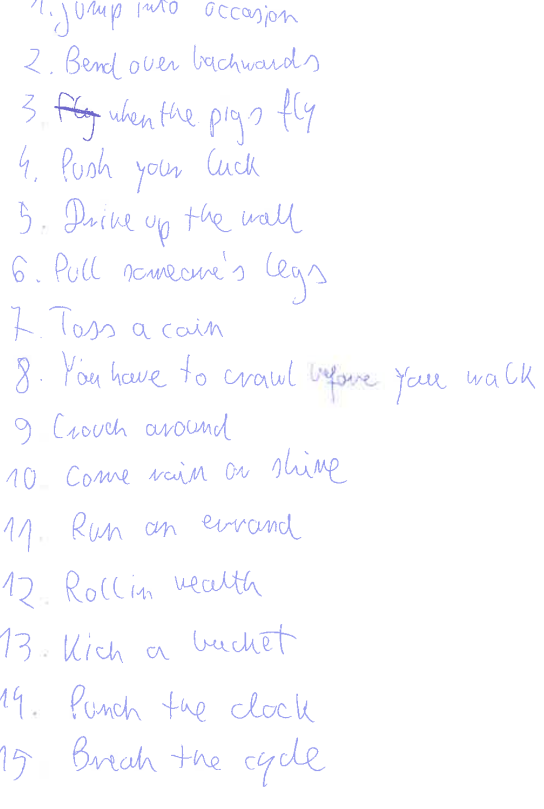 1. Jump into occasion
2. Bend over backwards
3. Fly when the pigs fly
4. Push your luck
5. Drive up the wall
6. Pull someone's legs
7. Toss a coin
8. You have to crawl before you walk
9 Crouch around
10 Come rain or shine
11. Run an errand
12. Roll in wealth
13. Kick a bucket
14. Punch the clock
15 Break the cycle